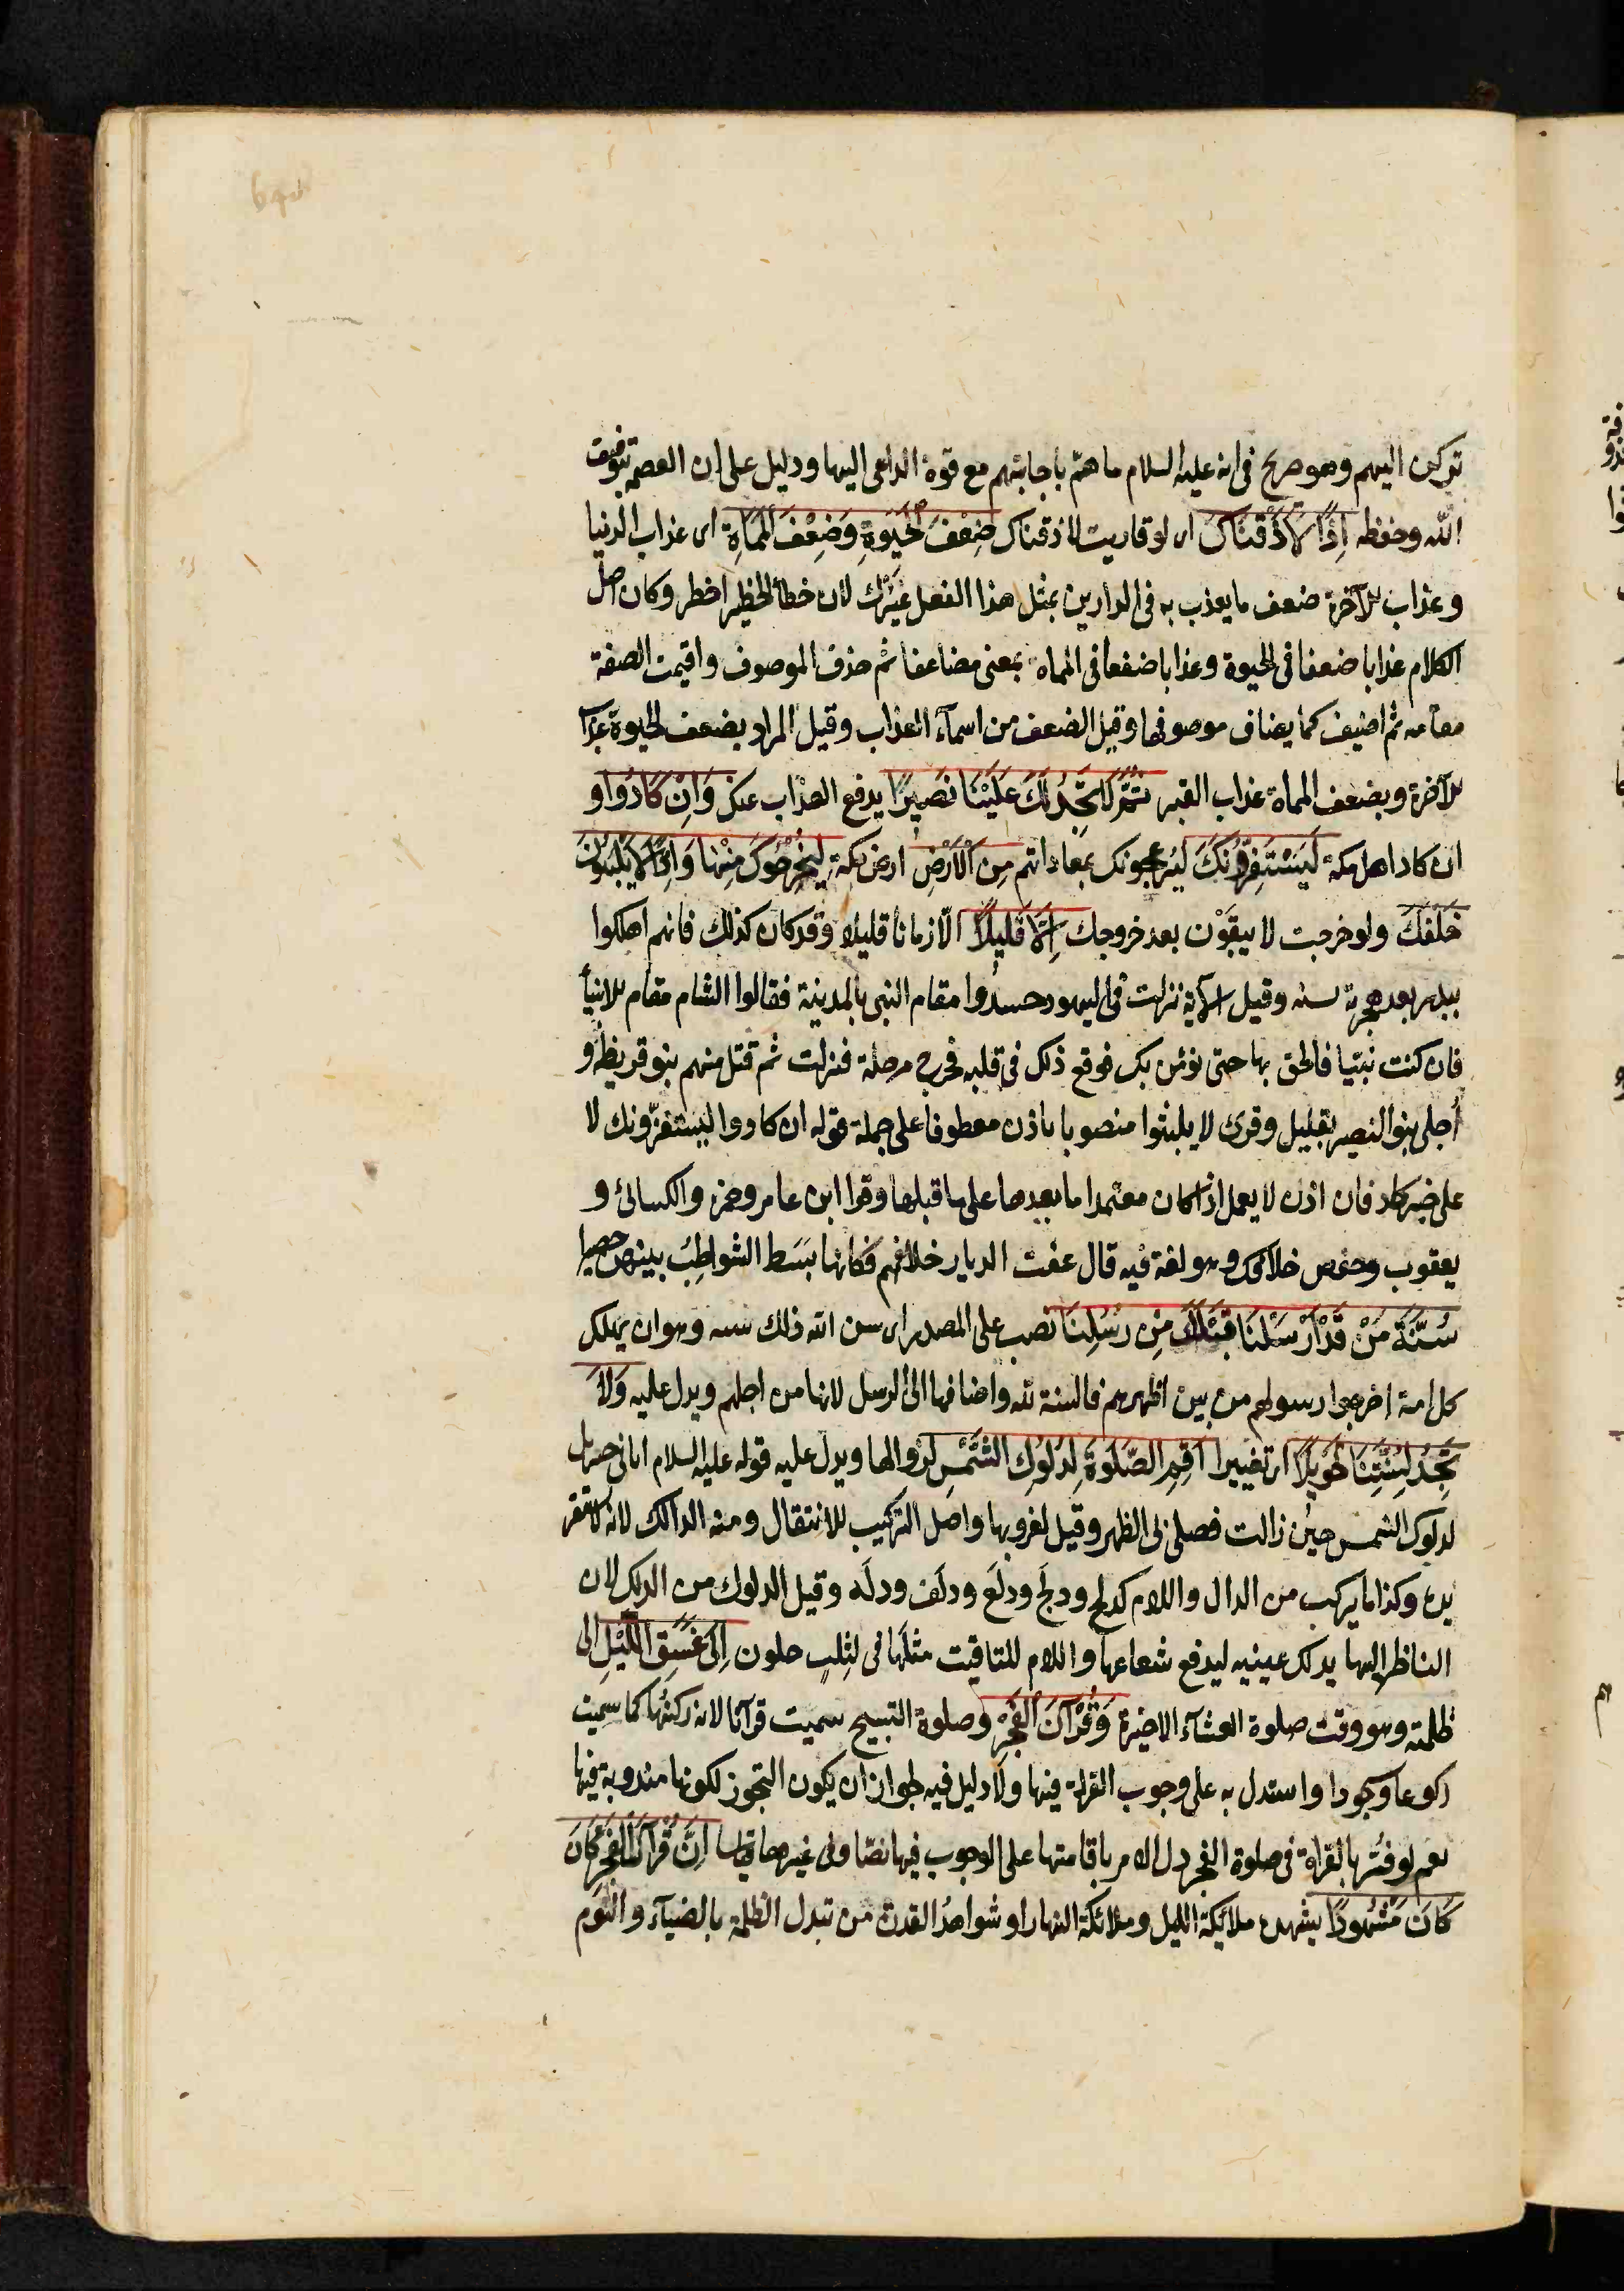 تركن اليهم وهو صريح فى انه عليه السلام ما همّ باجابتهم مع قوة الداعى اليها ودليل على ان العصمة بتوفيق
الله وحفظه اِذًا لَاَذَقْنَاكَ اى لو قاربت لاذقناك ضِعْفَ الْحَيٰوةِ وَضِعْفَ الْمَمَاةِ اى عذاب الدنيا
وعذاب الآخرة ضعف ما يعذب به فى الدارين بمثل هذا الفعل غَيْرُك لان خطأ الخطير اخطر وكان اصل
الكلام عذابا ضعفا فى الحيوة وعذابا ضعفا فى المماة بمعنى مضاعفا ثم حذف الموصوف واقيمت الصفة
مقامه ثم اضيف كما يضاف موصوفها وقيل الضعف من اسمآء العذاب وقيل المراد بضعف الحيوة عذاب
الآخرة وبضعف المماة عذاب القبر ثُمَّ لَا تَجِدُ لَكَ عَلَيْنَا نَصِيرًا يدفع العذاب عنك وَاِنْ كَادُوا و
ان كاد اهل مكة لَيَسْتَفِزُّونَكَ ليُزعجونك بمعاداتهم مِنَ الْاَرْضِ ارض مكة لِيُخْرِجُوكَ مِنْهَا وَاِذًا لَا يَلْبَثُونَ
خَلْفَكَ ولو خرجت لا يبقَوْن بعد خروجك اِلَّا قَلِيلًا الّا زمانا قليلا وقد كان كذلك فانهم اهلكوا
ببدر بعد هجرته بسنه وقيل الآية نزلت فى اليهود حسدُوا مقام النبى بالمدينة فقالوا الشام مقام الانبيأ
فان كنت نبيّا فالحق بها حتى نؤمن بك فوقع ذلك فى قلبه فخرج مرحلة فنزلت ثم قتل منهم بنو قريظة و
اُجلى بنو النضير بقليل وقرئ لا يلبثوا منصوبا باذن معطوفا على جملة قوله ان كادوا ليستفزّونك لا
على خبر كاد فان اذن لا يعمل اذا كان معتمدا ما بعدها على ما قبلها وقرا ابن عامر وحمزه والكسائى و
يعقوب وحفص خلافك وهو لغة فيه قال عفت الديار خلافهم فكانها بَسَط الشواطِبُ بينهن حصيرا
سُنَّةَ مَنْ قَدْ اَرْسَلْنَا قَبْلَكَ مِنْ رُسُلِنَا نصب على المصدر اى سن الله ذلك سنه وهو ان يهلك
كل امة اخرجوا رسولهم من بين اظهرهم فالسنة لله واضافها الى الرسل لانها من اجلهم ويدل عليه وَلَا
تَجِدُ لِسُنَّتِنَا تَحْوِيلًا اى تغييرا اَقِمِ الصَّلٰوةَ لِدُلُوكِ الشَّمْسِ لزوالها ويدل عليه قوله عليه السلام اتانى جبريل
لدلوك الشمس حين زالت فصلى بى الظهر وقيل لغروبها واصل التركيب للانتقال ومنه الدالك لانه لا تستقر
يده وكذا ما يركب من الدال واللام كدلج ودلح ودلَع ودلَف ودلَه وقيل الدلوك من الدلك لان
الناظر اليها يدلك عينيه ليدفع شعاعها واللام للتاقيت مثلها فى لثلث خلون اِلَى غَسَقِ اللَّيْلِ الى
ظلمته وهو وقت صلوة العشآء الاخيرة وَقُرْآنَ الْفَجْرِ وصلوة الصبح سميت قرآنا لانه ركنُها كما سميت
ركوعا وسجودا واستدل به على وجوب القراة فيها ولا دليل فيه لجواز ان يكون التجوز لكونها مندوبة فيها
نعم لو فُسّر بالقراة فى صلوة الفجر دل الامر باقامتها على الوجوب فيها نصّا وفى غيرها قياسا اِنَّ قُرْآنَ الْفَجْرِ كَانَ
كَانَ مَشْهُودًا يشهده ملائكة الليل وملائكة النهار او شواهدُ القدرة من تبدل الظلمة بالضيآء والنوم